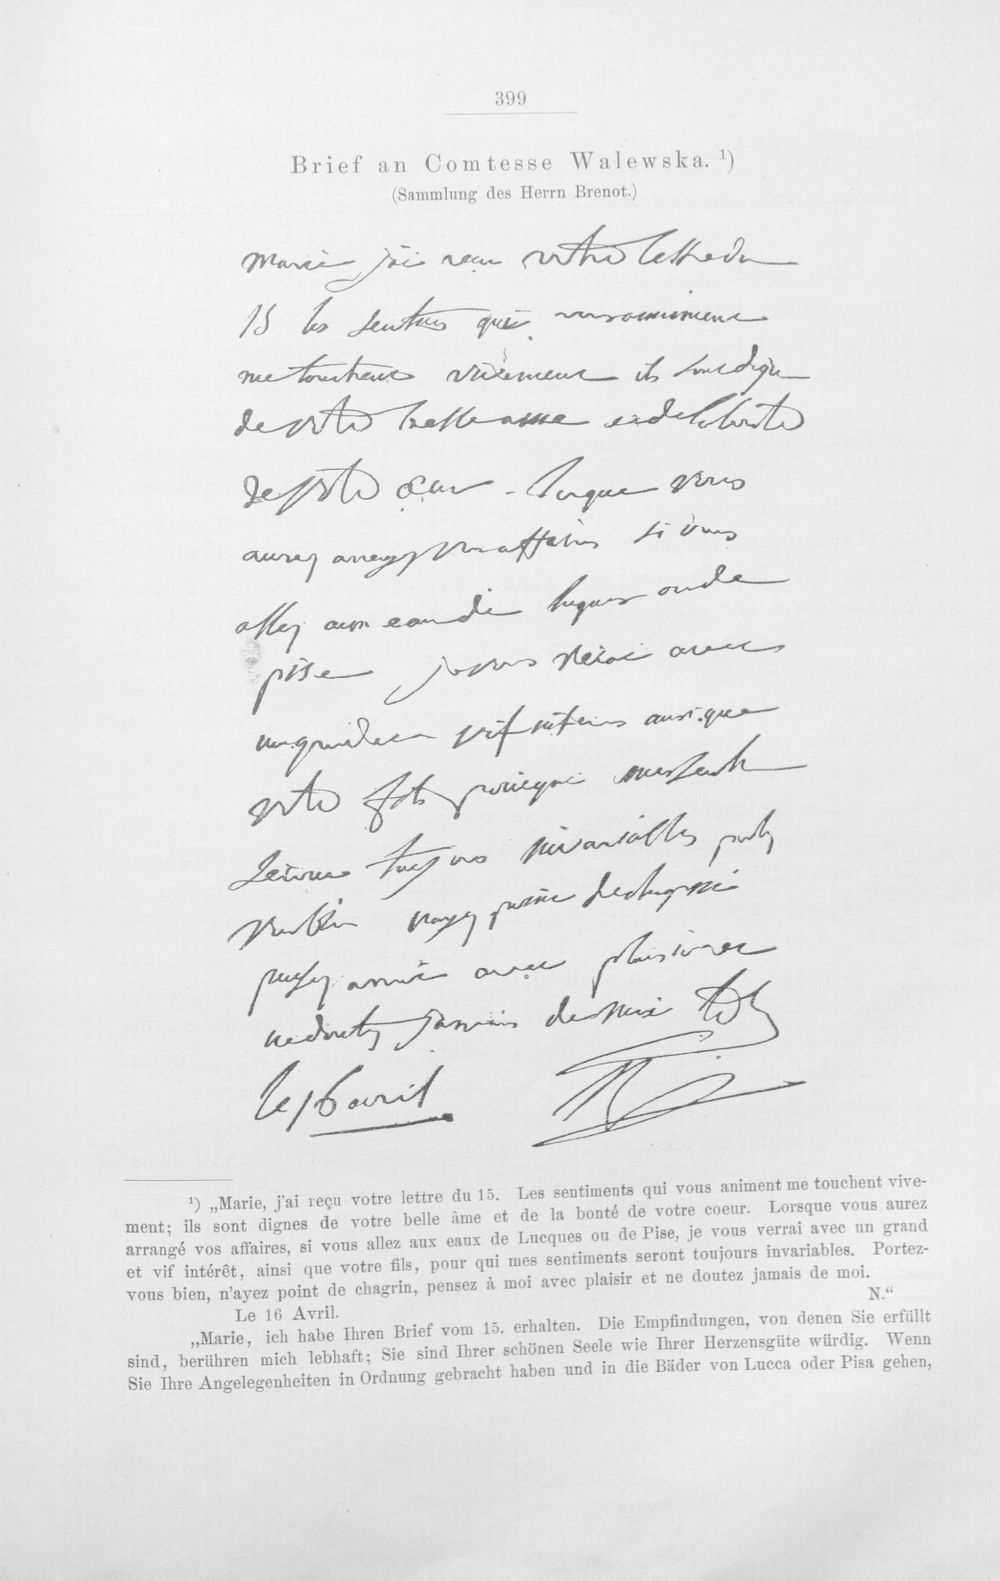 399
Brief an Comtesse Walewska. ¹)
(Sammlung des Herrn Brenot.)
Marie j'ai reçu votre lettre du
15 les sentimes qui vous animent
me touchent vivement ils sont digne
de votre belle ame et de la bonté
de votre cœur - lorque vous
aurez arrangez vos affaires si vous
allez aux eau de luques ou de
pise je vous verai avec
un grand et vif interes ausi que
votre fils pour qui mes sentimens
seront toujours invariables portez
vous bien nayez point de chagrin
pensez a moi avec plaisir et
ne doutez jamais de moi
le 16 avril
N
¹) „Marie, j'ai reçu votre lettre du 15. Les sentiments qui vous animent me touchent vive-
ment; ils sont dignes de votre belle âme et de la bonté de votre coeur. Lorsque vous aurez
arrangé vos affaires, si vous allez aux eaux de Lucques ou de Pise, je vous verrai avec un grand
et vif intérêt, ainsi que votre fils, pour qui mes sentiments seront toujours invariables. Portez-
vous bien, n'ayez point de chagrin, pensez à moi avec plaisir et ne doutez jamais de moi.
Le 16 Avril. N.“
„Marie, ich habe Ihren Brief vom 15. erhalten. Die Empfindungen, von denen Sie erfüllt
sind, berühren mich lebhaft; Sie sind Ihrer schönen Seele wie Ihrer Herzensgüte würdig. Wenn
Sie Ihre Angelegenheiten in Ordnung gebracht haben und in die Bäder von Lucca oder Pisa gehen,